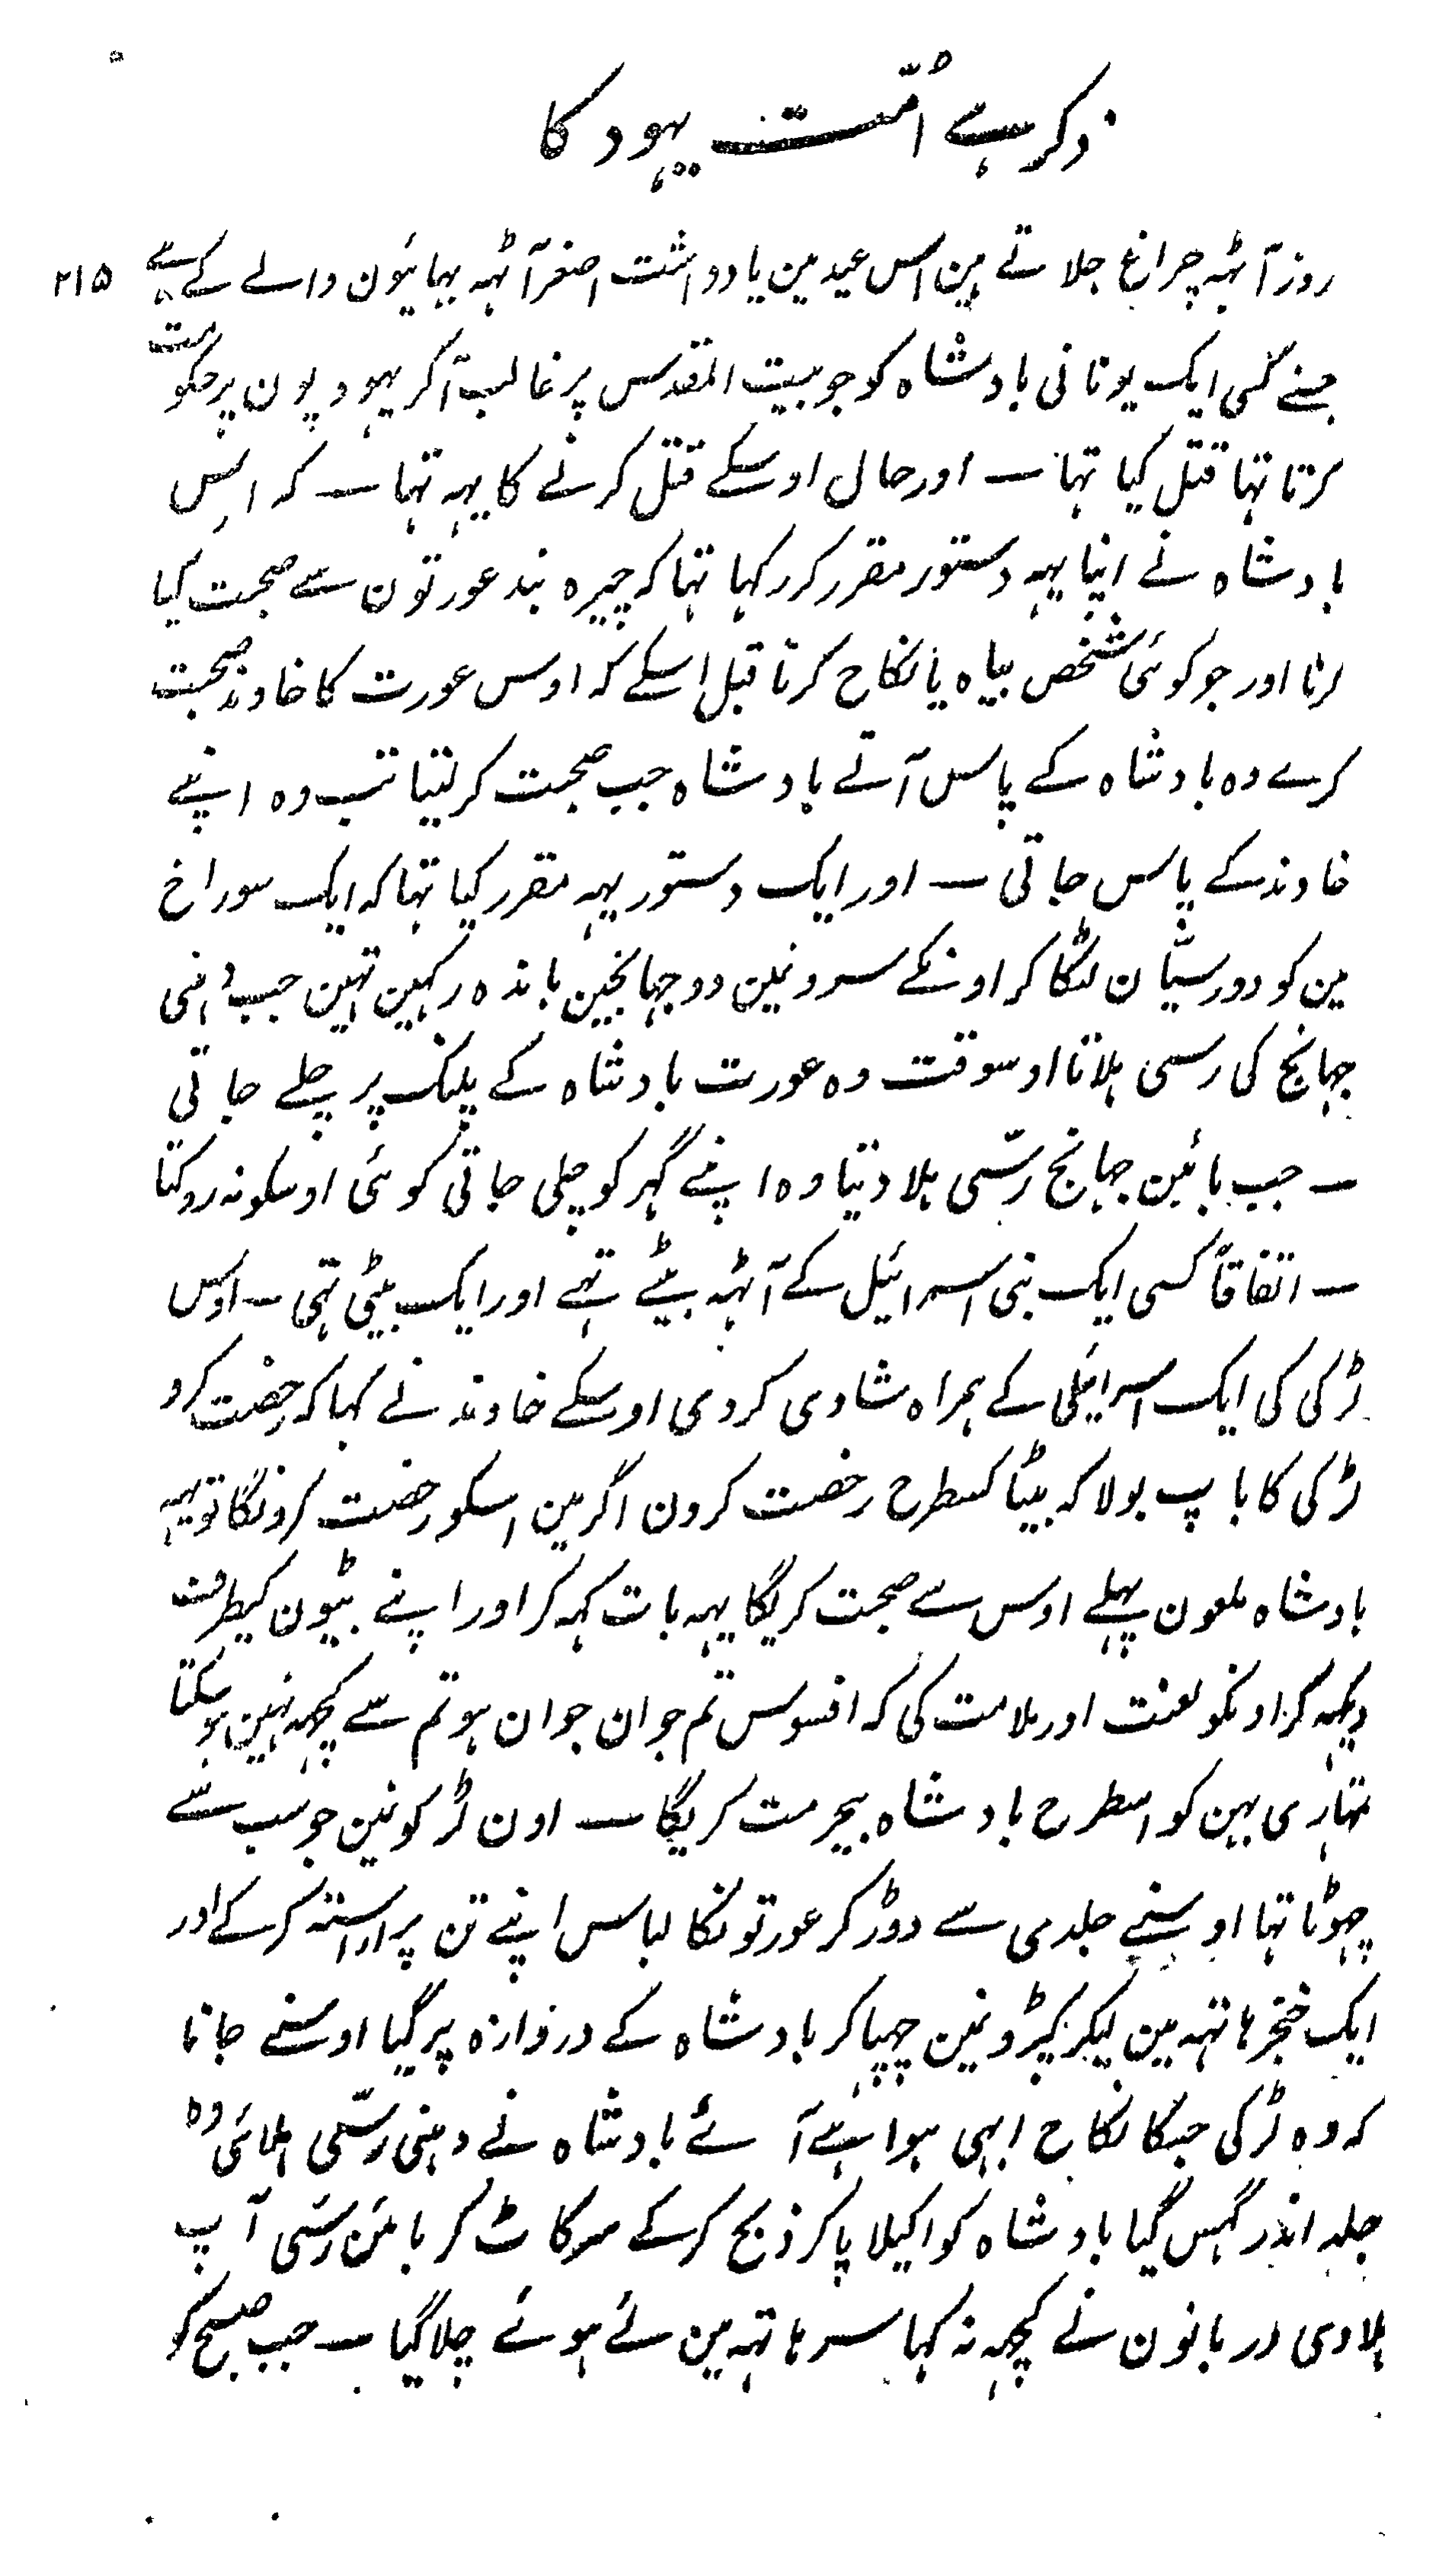 ذکر ہے اُمّت یہود کا
۲۱۵
روز آٹہہ چراغ جلاتے ہین اس عید مین یادداشت اصغر آٹہہ بہائیون والے کے ہے
جسنے کسی ایک یونانی بادشاہ کو جو بیت المقدس پر غالب آکر یہودیون پر حکومت
کرتا تہا قتل کیا تہا ۔ اور حال اوسکے قتل کرنے کا یہہ تہا ۔ کہ اس
بادشاہ نے اپنا یہہ دستور مقرر کر رکہا تہا کہ چیرہ بند عورتون سے صحبت کیا
کرتا اور جو کوئی شخص بیاہ یا نکاح کرتا قبل اسکے کہ اوس عورت کا خاوند صحبت
کرے وہ بادشاہ کے پاس آتے بادشاہ جب صحبت کر لیتا تب وہ اپنے
خاوند کے پاس جاتی ۔ اور ایک دستور یہہ مقرر کیا تہا کہ ایک سوراخ
مین کو دو رسیّان لٹکا کر اونکے سرونمین دو جہانجین باندہ رکہین تہین جب داہنی
جہانج کی رسی ہلاتا اوسوقت وہ عورت بادشاہ کے پلنگ پر چلے جاتی
۔ جب بائین جہانج رسّی ہلا دیتا وہ اپنے گہر کو چلی جاتی کوئی اوسکو نہ روکتا
۔ اتفاقاً کسی ایک بنی اسرائیل کے آٹہہ بیٹے تہے اور ایک بیٹی تہی ۔ اوس
لڑکی کی ایک اسرائیلی کے ہمراہ شادی کردی اوسکے خاوند نے کہا کہ رخصت کرد
لڑکی کا باپ بولا کہ بیٹا کسطرح رخصت کرون اگر مین اسکو رخصت کرونگا تو یہہ
بادشاہ ملعون پہلے اوس سے صحبت کریگا یہہ بات کہہ کر اور اپنے بیٹون کیطرف
دیکہہ کر اونکو لعنت اور ملامت کی کہ افسوس تم جوان جوان ہو تم سے کچہہ نہین ہو سکتا
تمہاری بہین کو اسطرح بادشاہ بیحرمت کریگا ۔ اون لڑکونمین جو سب سے
چہوٹا تہا اوسنے جلدی سے دوڑ کر عورتونکا لباس اپنے تن پر اراستہ کر کے اور
ایک خنجر ہاتہہ مین لیکر کپڑونمین چہپا کر بادشاہ کے دروازہ پر گیا اوسنے جانا
کہ وہ لڑکی جسکا نکاح ابہی ہوا ہے آئے بادشاہ نے دہنی رسّی ہلائی وہ
جلد اندر گہس گیا بادشاہ کو اکیلا پاکر ذبح کرکے سر کاٹ کر بائین رسّی آپ
ہلا دی دربانون نے کچہہ نہ کہا سر ہاتہہ مین لئے ہوئے چلا گیا ۔ جب صبح کو